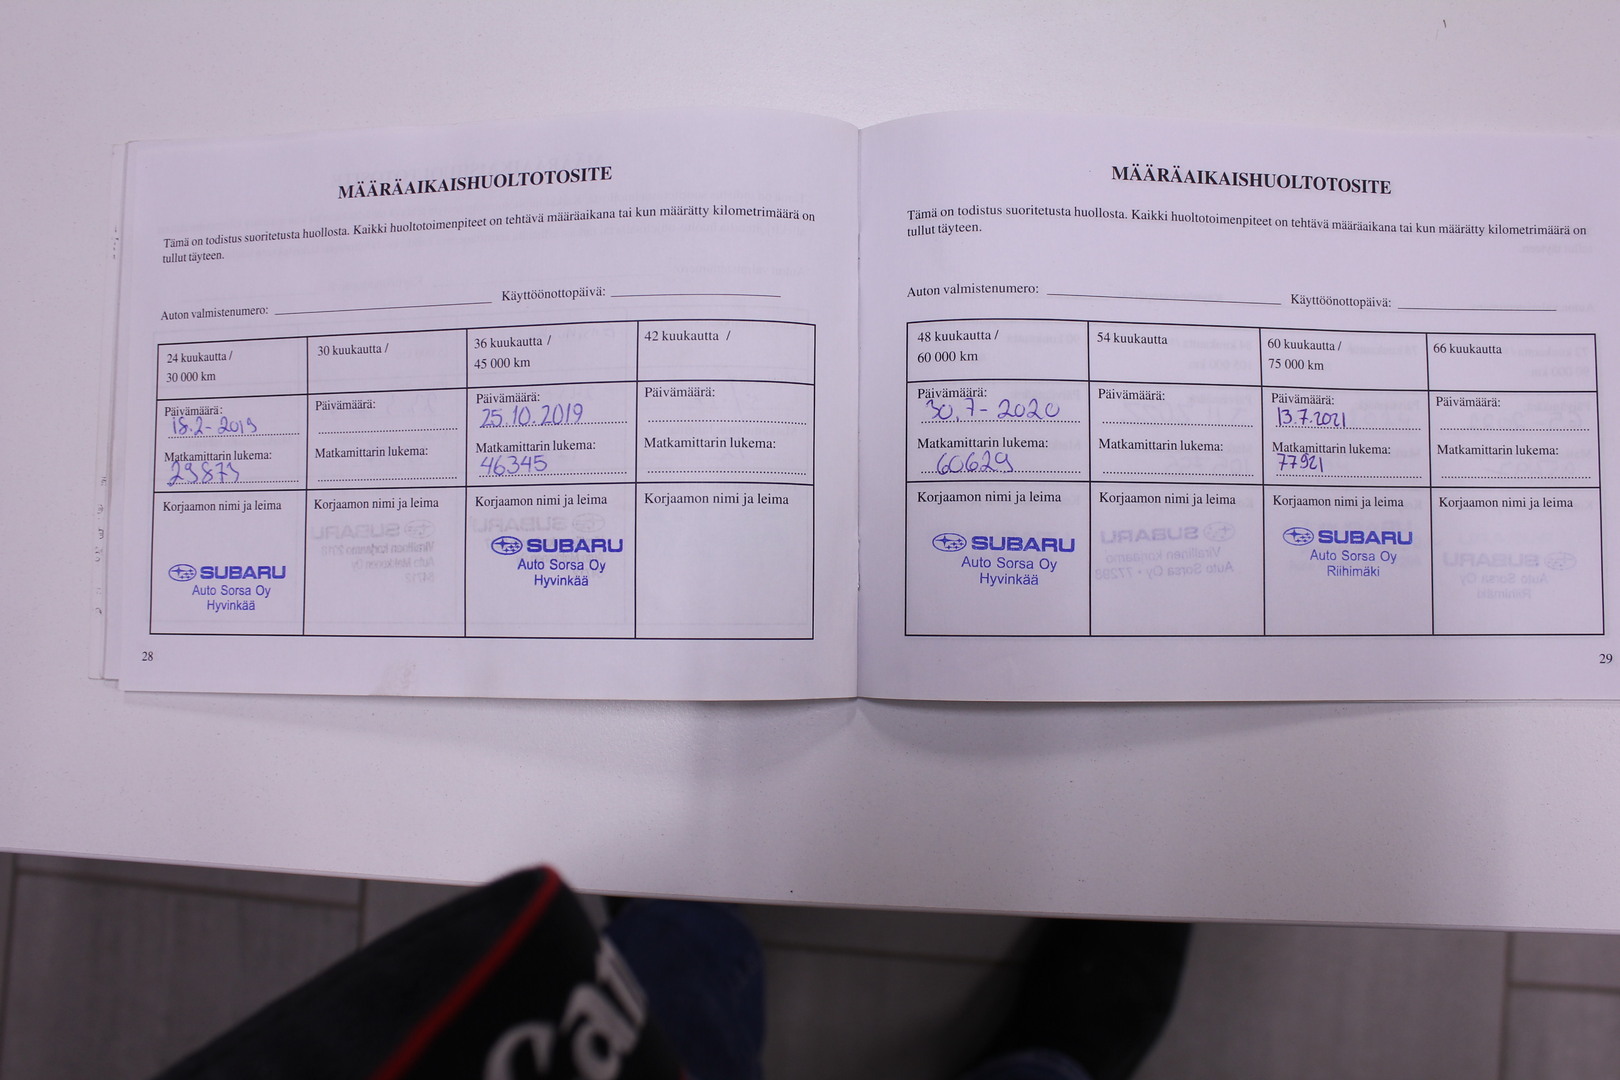 MÄÄRÄAIKAISHUOLTOTOSITE
Tämä on todistus suoritetusta huollosta. Kaikki huoltotoimenpiteet on tehtävä määräaikana tai kun määrätty kilometrimäärä on
tullut täyteen.
Auton valmistenumero: Käyttöönottopäivä:
24 kuukautta /
30 000 km
Päivämäärä:
18.2-2019
Matkamittarin lukema:
29873
Korjaamon nimi ja leima
SUBARU
Auto Sorsa Oy
Hyvinkää
30 kuukautta /
Päivämäärä:
Matkamittarin lukema:
Korjaamon nimi ja leima
36 kuukautta /
45 000 km
Päivämäärä:
25.10.2019
Matkamittarin lukema:
46345
Korjaamon nimi ja leima
SUBARU
Auto Sorsa Oy
Hyvinkää
42 kuukautta /
Päivämäärä:
Matkamittarin lukema:
Korjaamon nimi ja leima
28
MÄÄRÄAIKAISHUOLTOTOSITE
Tämä on todistus suoritetusta huollosta. Kaikki huoltotoimenpiteet on tehtävä määräaikana tai kun määrätty kilometrimäärä on
tullut täyteen.
Auton valmistenumero: Käyttöönottopäivä:
48 kuukautta /
60 000 km
Päivämäärä:
30.7-2020
Matkamittarin lukema:
60629
Korjaamon nimi ja leima
SUBARU
Auto Sorsa Oy
Hyvinkää
54 kuukautta
Päivämäärä:
Matkamittarin lukema:
Korjaamon nimi ja leima
60 kuukautta /
75 000 km
Päivämäärä:
13.7.2021
Matkamittarin lukema:
77921
Korjaamon nimi ja leima
SUBARU
Auto Sorsa Oy
Riihimäki
66 kuukautta
Päivämäärä:
Matkamittarin lukema:
Korjaamon nimi ja leima
29